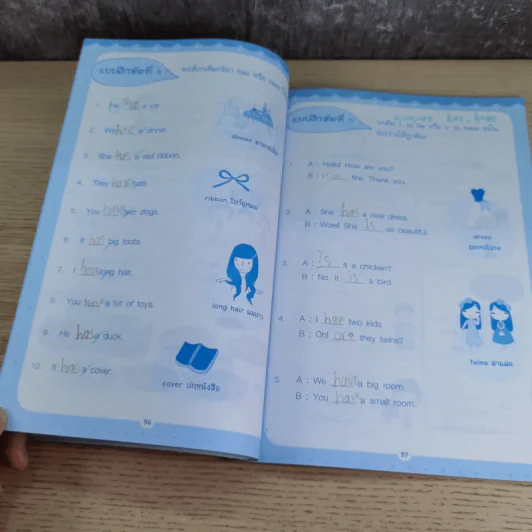 แบบฝึกหัดที่ 4
1. He has a car.
2. We has a dinner.
dinner อาหารเย็น
3. She has a red ribbon.
4. They have hats.
ribbon โบว์ผูกผม
5. You have two dogs.
6. It has big foots.
7. I have long hair.
long hair ผมยาว
8. You have a lot of toys.
9. He has a duck.
10. It has a cover.
cover ปกหนังสือ
56
แบบฝึกหัดที่ 5
1. A : Hello! How are you?
B : I'm fine. Thank you.
2. A : She has a new dress.
B : Wow! She is so beautiful.
dress
3. A : Is it a chicken?
B : No. It is a bird.
4. A : I have two kids.
B : Oh! are they twins?
twins ฝาแฝด
5. A : We have a big room.
B : You have a small room.
57